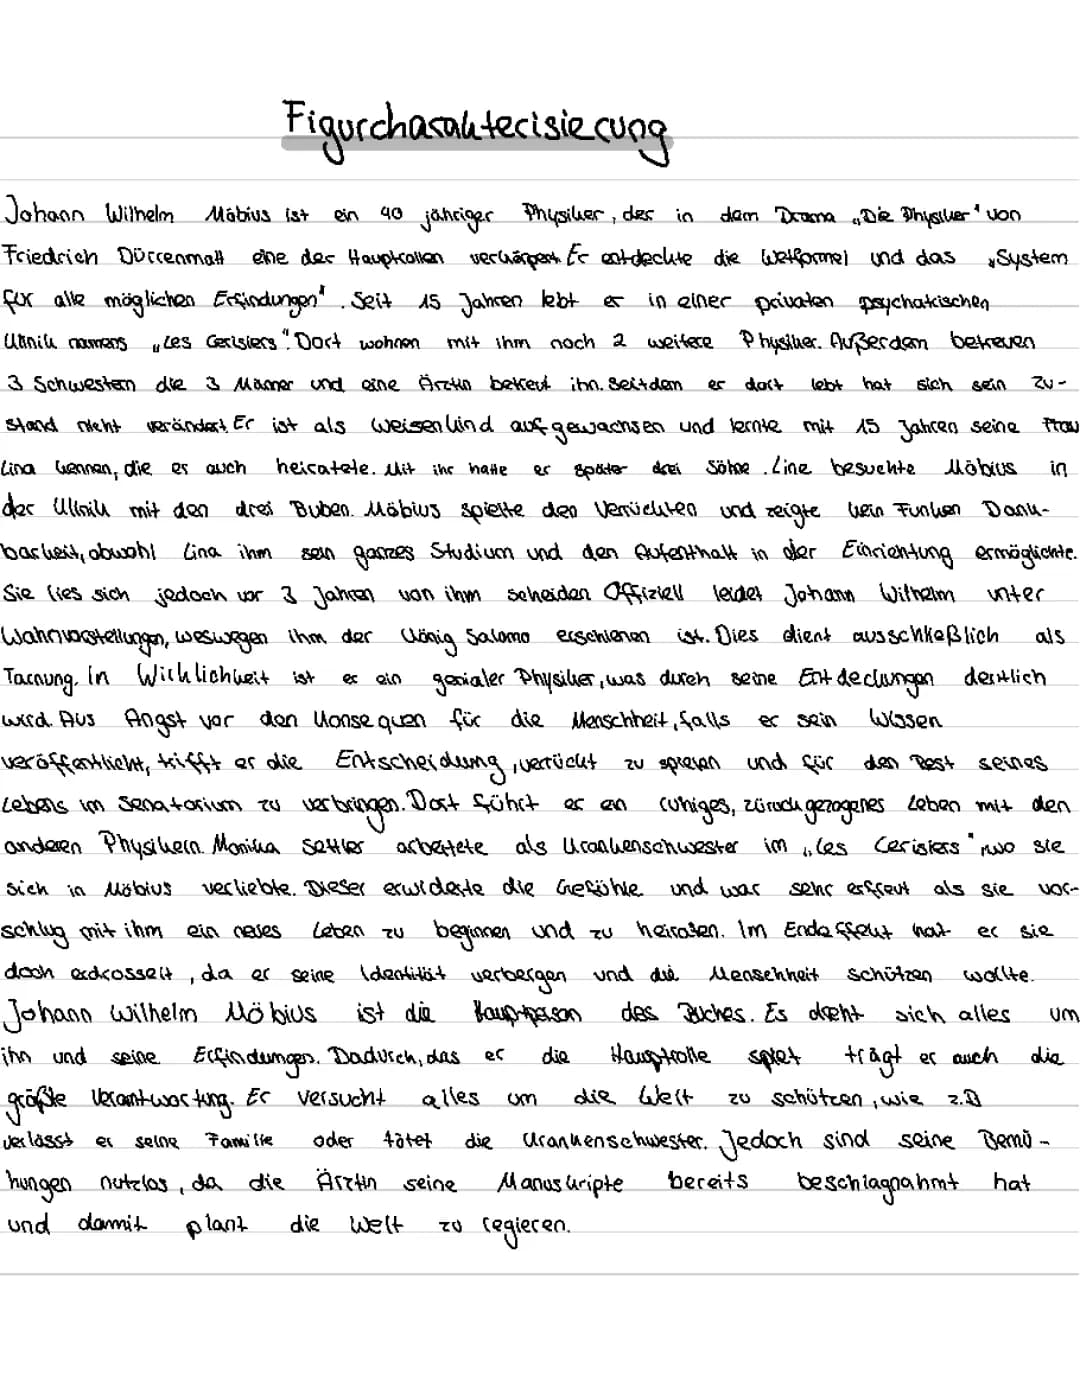 Figurcharakterisierung
Johann Wilhelm Möbius ist ein 40 jähriger Physiker, der in dem Drama „Die Physiker" von
Friedrich Dürrenmatt eine der Hauptrollen verkörpert. Er entdeckte die Weltformel und das „System
für alle möglichen Erfindungen". Seit 15 Jahren lebt er in einer privaten psychatrischen
Klinik namens „Les Cerisiers". Dort wohnen mit ihm noch 2 weitere Physiker. Außerdem betreuen
3 Schwestern die 3 Männer und eine Ärztin betreut ihn. Seitdem er dort lebt hat sich sein Zu-
stand nicht verändert. Er ist als Weisenkind aufgewachsen und lernte mit 15 Jahren seine Frau
Lina kennen, die er auch heiratete. Mit ihr hatte er später drei Söhne. Line besuchte Möbius in
der Klinik mit den drei Buben. Möbius spielte den Verrückten und zeigte kein Funken Dank-
barkeit, obwohl Lina ihm sein ganzes Studium und den Aufenthalt in der Einrichtung ermöglichte.
Sie lies sich jedoch vor 3 Jahren von ihm scheiden. Offiziell leidet Johann Wilhelm unter
Wahnvorstellungen, weswegen ihm der König Salomo erschienen ist. Dies dient ausschließlich als
Tarnung. In Wirklichkeit ist er ein genialer Physiker, was durch seine Entdeckungen deutlich
wird. Aus Angst vor den Konsequen für die Menschheit, falls er sein Wissen
veröffentlicht, trifft er die Entscheidung, verrückt zu spielen und für den Rest seines
Lebens im Senatorium zu verbringen. Dort führt er ein ruhiges, zurückgezogenes Leben mit den
anderen Physikern. Monika Settler arbeitete als Krankenschwester im „Les Cerisiers", wo sie
sich in Möbius verliebte. Dieser erwiderte die Gefühle und war sehr erfreut als sie vor-
schlug mit ihm ein neues Leben zu beginnen und zu heiraten. Im Endeffekt hat er sie
doch erdrosselt, da er seine Identität verbergen und die Menschheit schützen wollte.
Johann Wilhelm Möbius ist die Hauptperson des Buches. Es dreht sich alles um
ihn und seine Erfindungen. Dadurch, das er die Hauptrolle spielt trägt er auch die
größte Verantwortung. Er versucht alles um die Welt zu schützen, wie z.B
verlässt er seine Familie oder tötet die Krankenschwester. Jedoch sind seine Bemü-
hungen nutzlos, da die Ärztin seine Manuskripte bereits beschlagnahmt hat
und damit plant die Welt zu regieren.